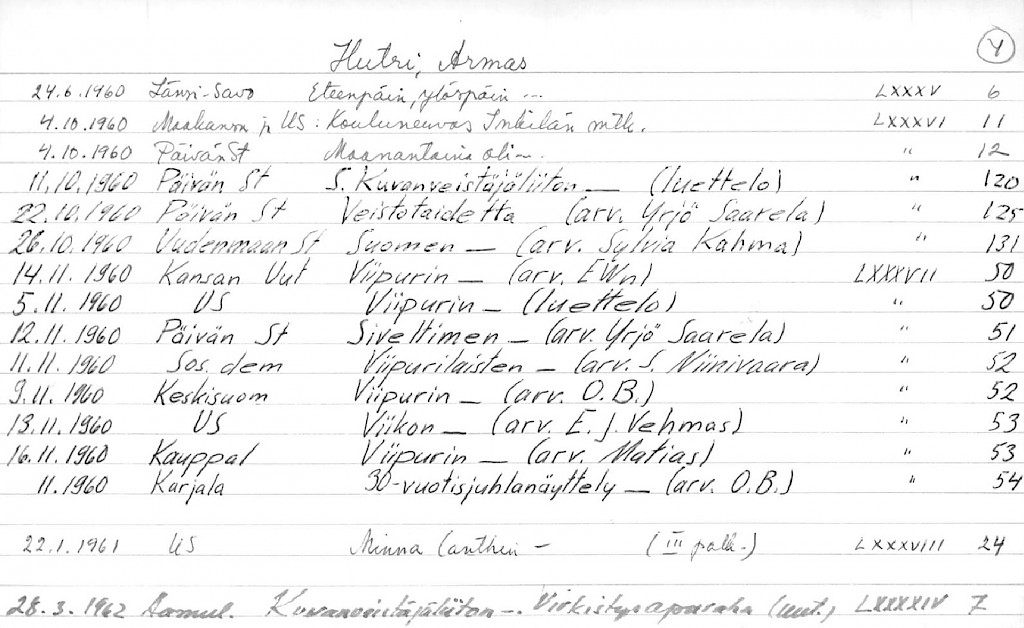 Y
Hutri, Armas
24.6.1960 Länsi-Savo Eteenpäin, ylöspäin ... LXXXV 6
4.10.1960 Maakansa ja US: Kouluneuvos Inkilän mtk. LXXXVI 11
4.10.1960 Päivän St Maanantaina oli — " 12
11.10.1960 Päivän St S. Kuvanveistäjäliiton — (luettelo) " 120
22.10.1960 Päivän St Veistotaidetta (arv. Yrjö Saarela) " 125
26.10.1960 Uudenmaan St Suomen — (arv. Sylvia Kahma) " 131
14.11.1960 Kansan Uut Viipurin — (arv. EWn) LXXXVII 50
5.11.1960 US Viipurin — (luettelo) " 50
12.11.1960 Päivän St Siveltimen — (arv. Yrjö Saarela) " 51
11.11.1960 Sos. dem Viipurilaisten — (arv. S. Niinivaara) " 52
9.11.1960 Keskisuom Viipurin — (arv. O.B.) " 52
13.11.1960 US Viikon — (arv. E. J. Vehmas) " 53
16.11.1960 Kauppal Viipurin — (arv. Matias) " 53
11.1960 Karjala 30-vuotisjuhlanäyttely — (arv. O.B.) " 54
22.1.1961 US Minna Canthin — (III palk.) LXXXVIII 24
28.3.1962 Aamul. Kuvanveistäjäliiton —. Virkistysapuraha (uut.) LXXXXIV 7